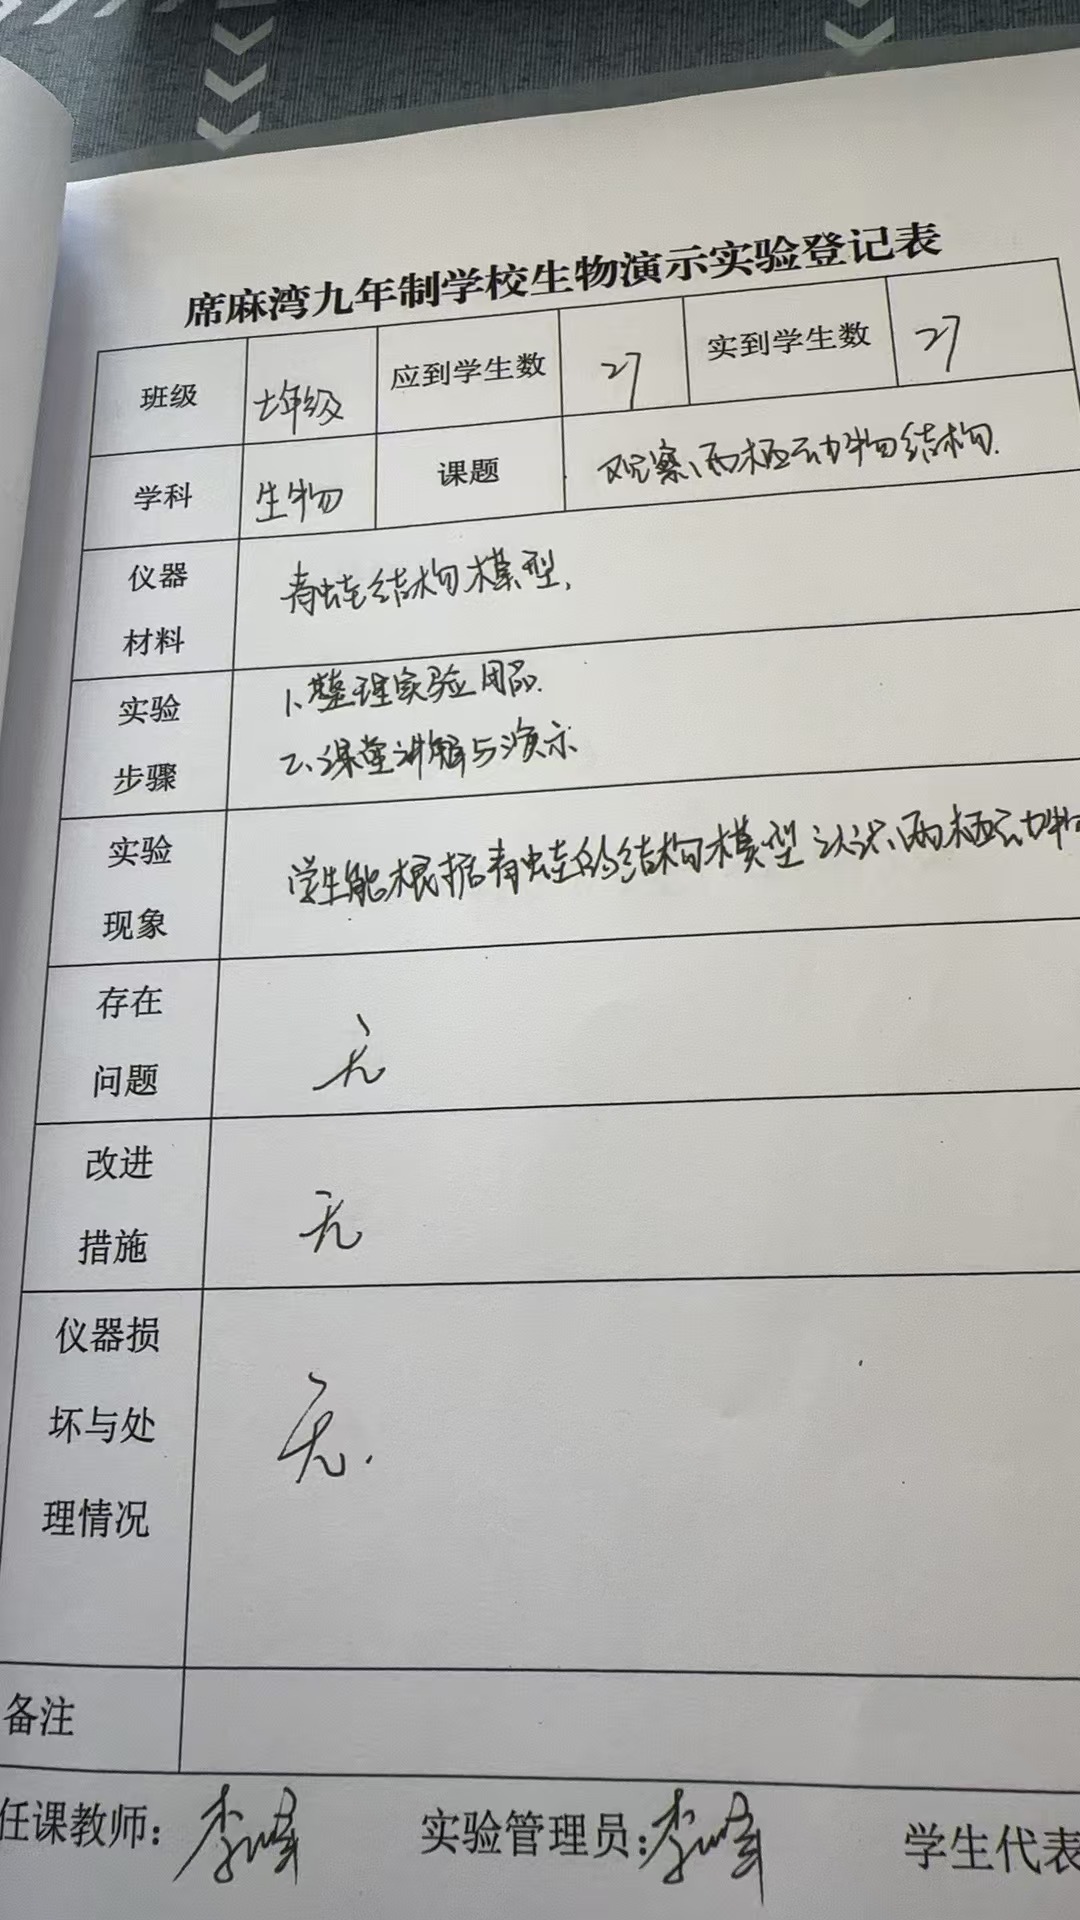 席麻湾九年制学校生物演示实验登记表
班级 七年级 应到学生数 27 实到学生数 27
学科 生物 课题 观察两栖动物结构.
仪器
材料
青蛙结构模型.
实验
步骤
1、整理实验用品.
2、课堂讲解与演示
实验
现象
学生能根据青蛙的结构模型认识两栖动物
存在
问题
无
改进
措施
无
仪器损
坏与处
理情况
无.
备注
任课教师: 实验管理员: 学生代表